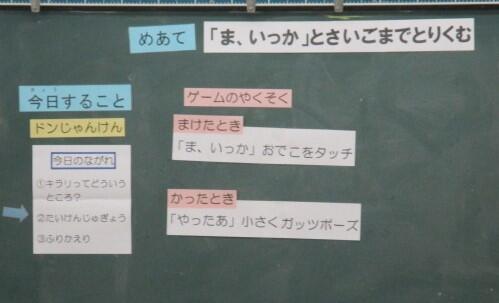 めあて
「ま、いっか」とさいごまでとりくむ
きょう
今日すること
ドンじゃんけん
今日のながれ
①キラリってどういう
ところ？
②たいけんじゅぎょう
③ふりかえり
ゲームのやくそく
まけたとき
「ま、いっか」おでこをタッチ
かったとき
「やったあ」小さくガッツポーズ